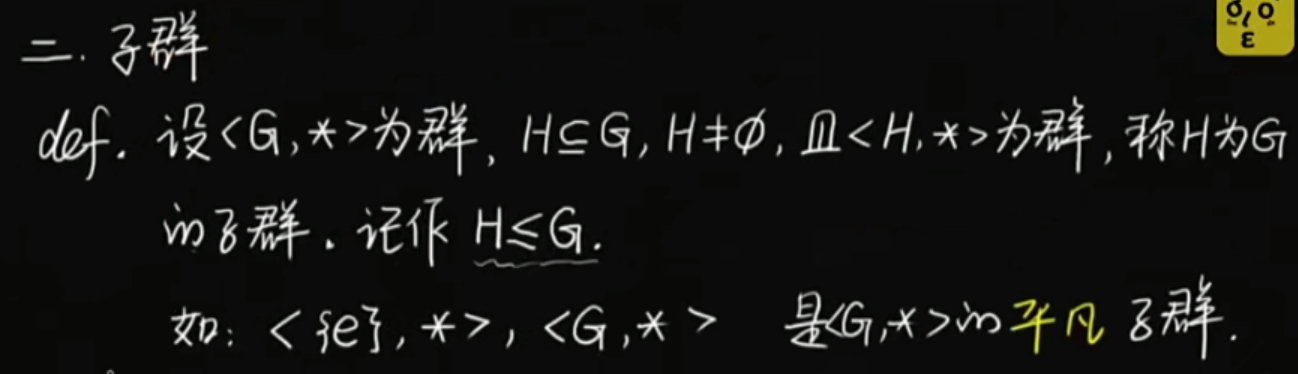 二. 子群
def. 设<G,*>为群, H⊆G, H≠∅, 且<H,*>为群, 称H为G
的子群. 记作 H≤G.
如: <{e},*>, <G,*> 是<G,*>的平凡子群.